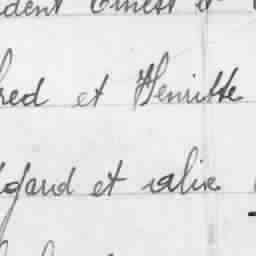 dent Ernest et
red et Henriette
gard et alix